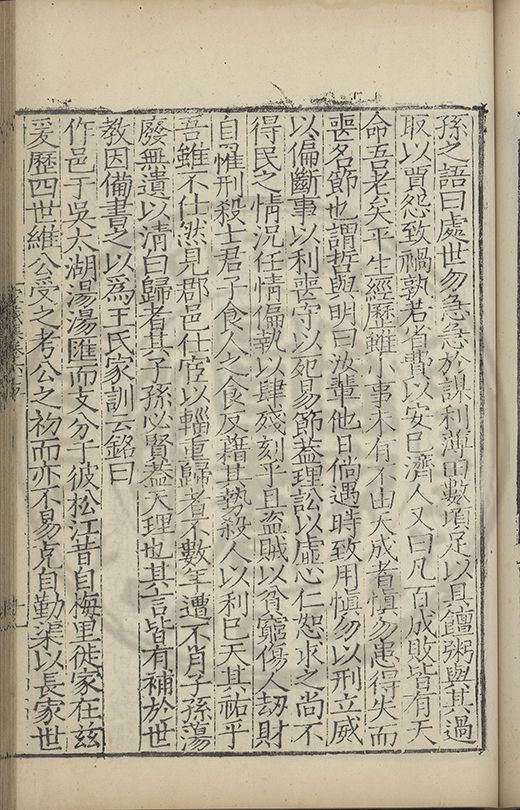 孫之語曰處世勿急急於謀利薄田數頃足以具饘粥與其過
取以賈怨致禍孰若省費以安巳濟人又曰凡百成敗皆有天
命吾老矣平生經歷雖小事未有不由大成者愼勿患得失而
喪名節也謂哲與明曰汝輩他日倘遇時致用愼勿以刑立威
以偏斷事以利喪守以死易節葢理訟以虛心仁恕求之尚不
得民之情況任情偏執以肆殘刻乎且盜賊以貧窮傷人刼財
自罹刑殺士君子食人之食反藉其勢殺人以利巳天其祐乎
吾雖不仕然見郡邑仕宦以輜重歸者不數年遭不肖子孫蕩
廢無遺以清白歸者其子孫必賢葢天理也其言皆有補於世
教因備書之以爲王氏家訓云銘曰
作邑于吳太湖湯湯匯而支分于彼松江昔自梅里徙家在兹
爰歷四世維公受之考公之初而亦不易克自勤渠以長家世